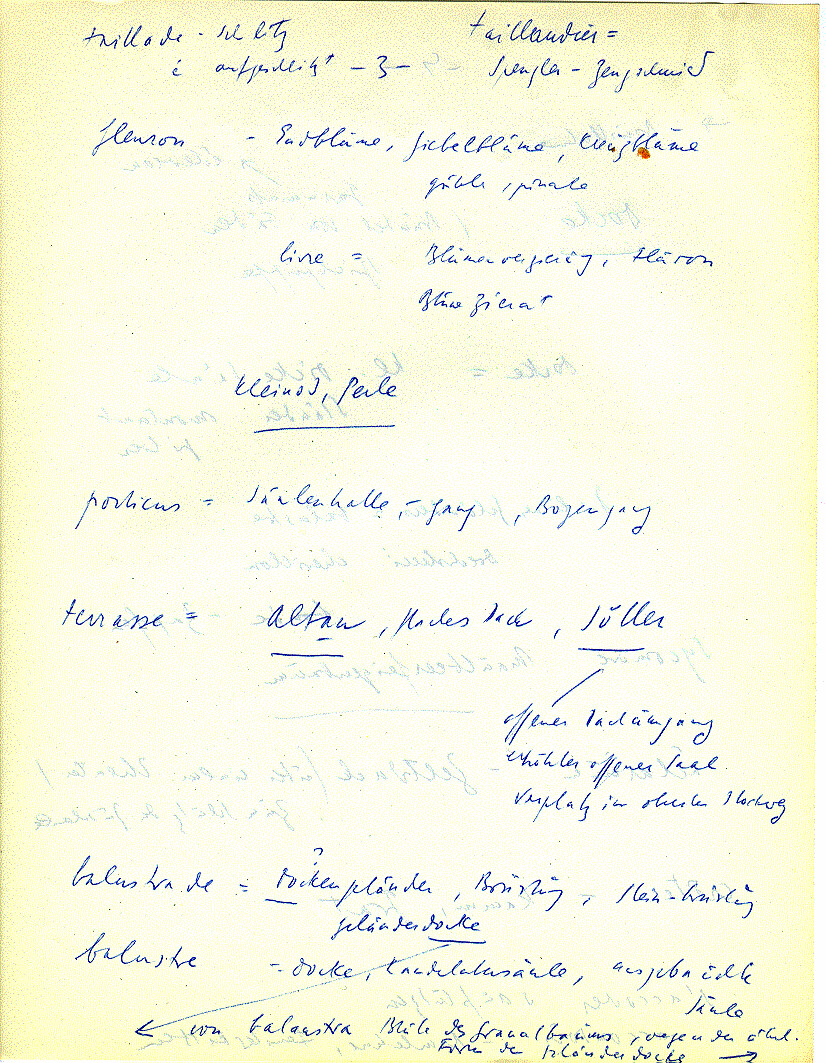 taillade - Schlitz
é aufgeschlitzt - 3 -
taillandier =
Spengler - Zeugschmied
fleuron - Endblume, Giebelblume, Kreuzblume
livre = Blumenverzierung, Fleuron
Blumenzierat
Kleinod, Perle
porticus = Säulenhalle, -gang, Bogengang
terrasse = Altan, flaches Dach, Söller
offener Dachumgang
erhöhter offener Saal
Vorplatz im obersten Stockwerk
?
balustrade = Dockengeländer, Brüstung, Steinbrüstung
geländerdocke
balustre = docke, Kandelabersäule, ausgebauchte
Säule
von balaustra Blüte des Granatbaums, wegen der ähnl.
Form der Geländerdocke